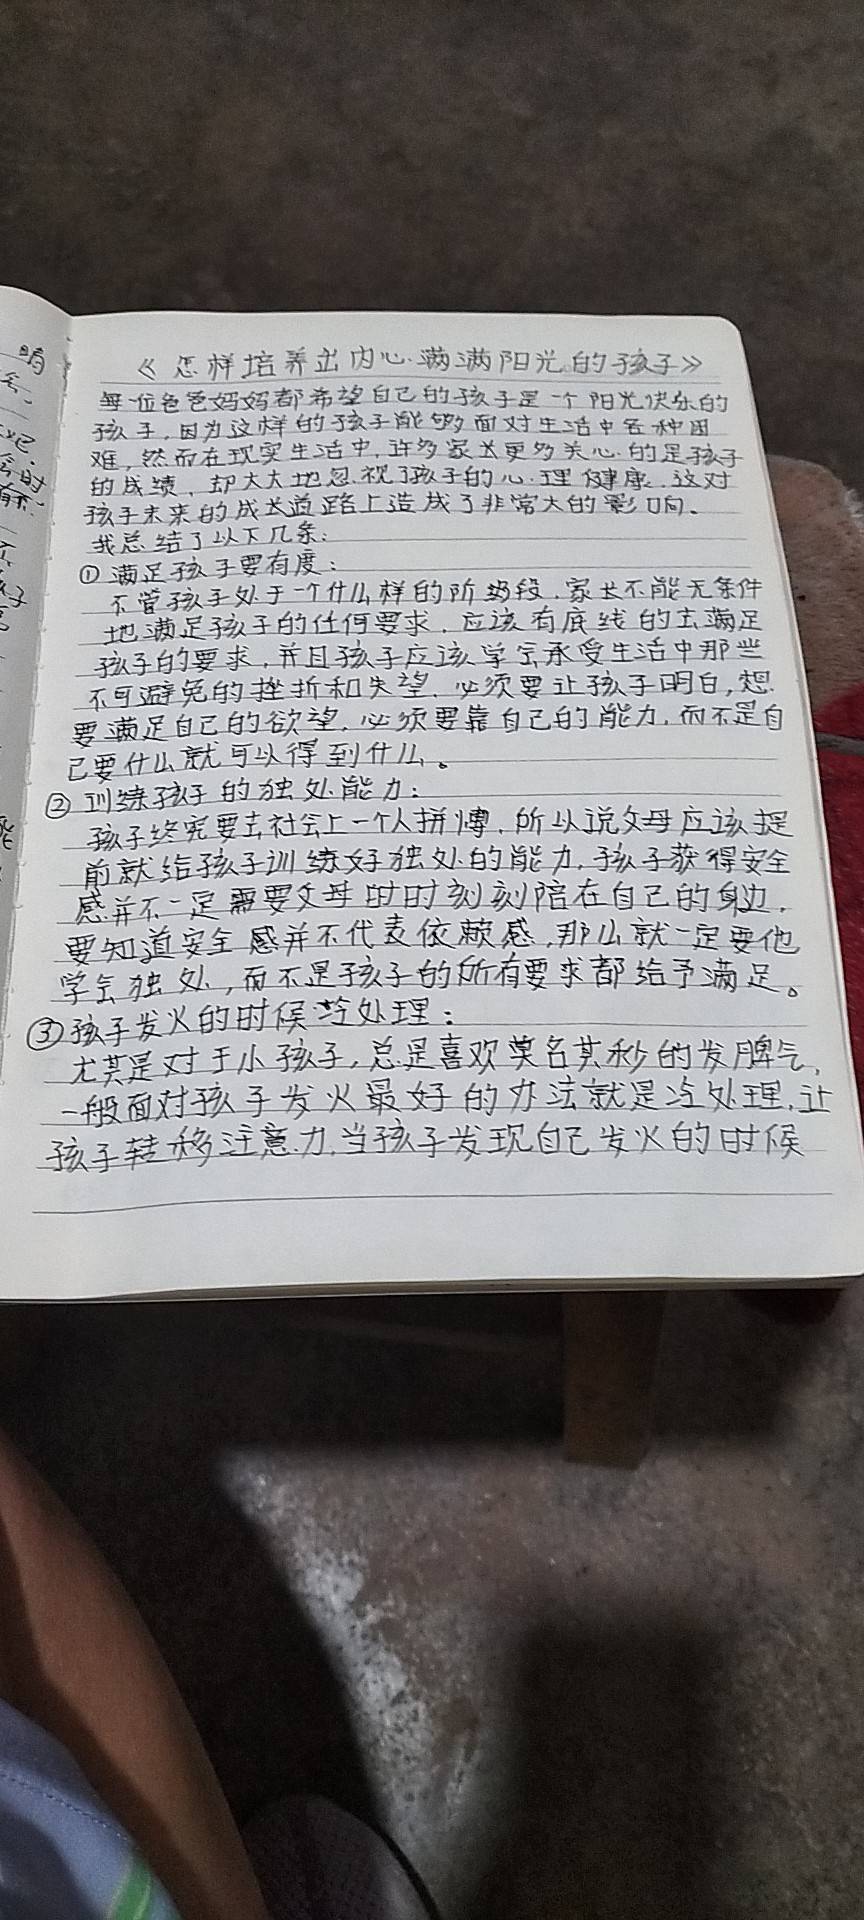 《怎样培养出内心满满阳光的孩子》
每一位爸爸妈妈都希望自己的孩子是一个阳光快乐的
孩子,因为这样的孩子能够面对生活中各种困
难,然而在现实生活中,许多家长更多关心的是孩子
的成绩,却大大地忽视了孩子的心理健康,这对
孩子未来的成长道路上造成了非常大的影响。
我总结了以下几条:
①满足孩子要有度:
不管孩子处于一个什么样的阶段,家长不能无条件
地满足孩子的任何要求,应该有底线的去满足
孩子的要求,并且孩子应该学会承受生活中那些
不可避免的挫折和失望,必须要让孩子明白,想
要满足自己的欲望,必须要靠自己的能力,而不是自
己要什么就可以得到什么。
②训练孩子的独处能力:
孩子终究要去社会上一个人拼博,所以说父母应该提
前就给孩子训练好独处的能力,孩子获得安全
感并不一定需要父母时时刻刻陪在自己的身边,
要知道安全感并不代表依赖感,那么就一定要他
学会独处,而不是孩子的所有要求都给予满足。
③孩子发火的时候冷处理:
尤其是对于小孩子,总是喜欢莫名其秒的发脾气,
一般面对孩子发火最好的办法就是冷处理,让
孩子转移注意力,当孩子发现自己发火的时候